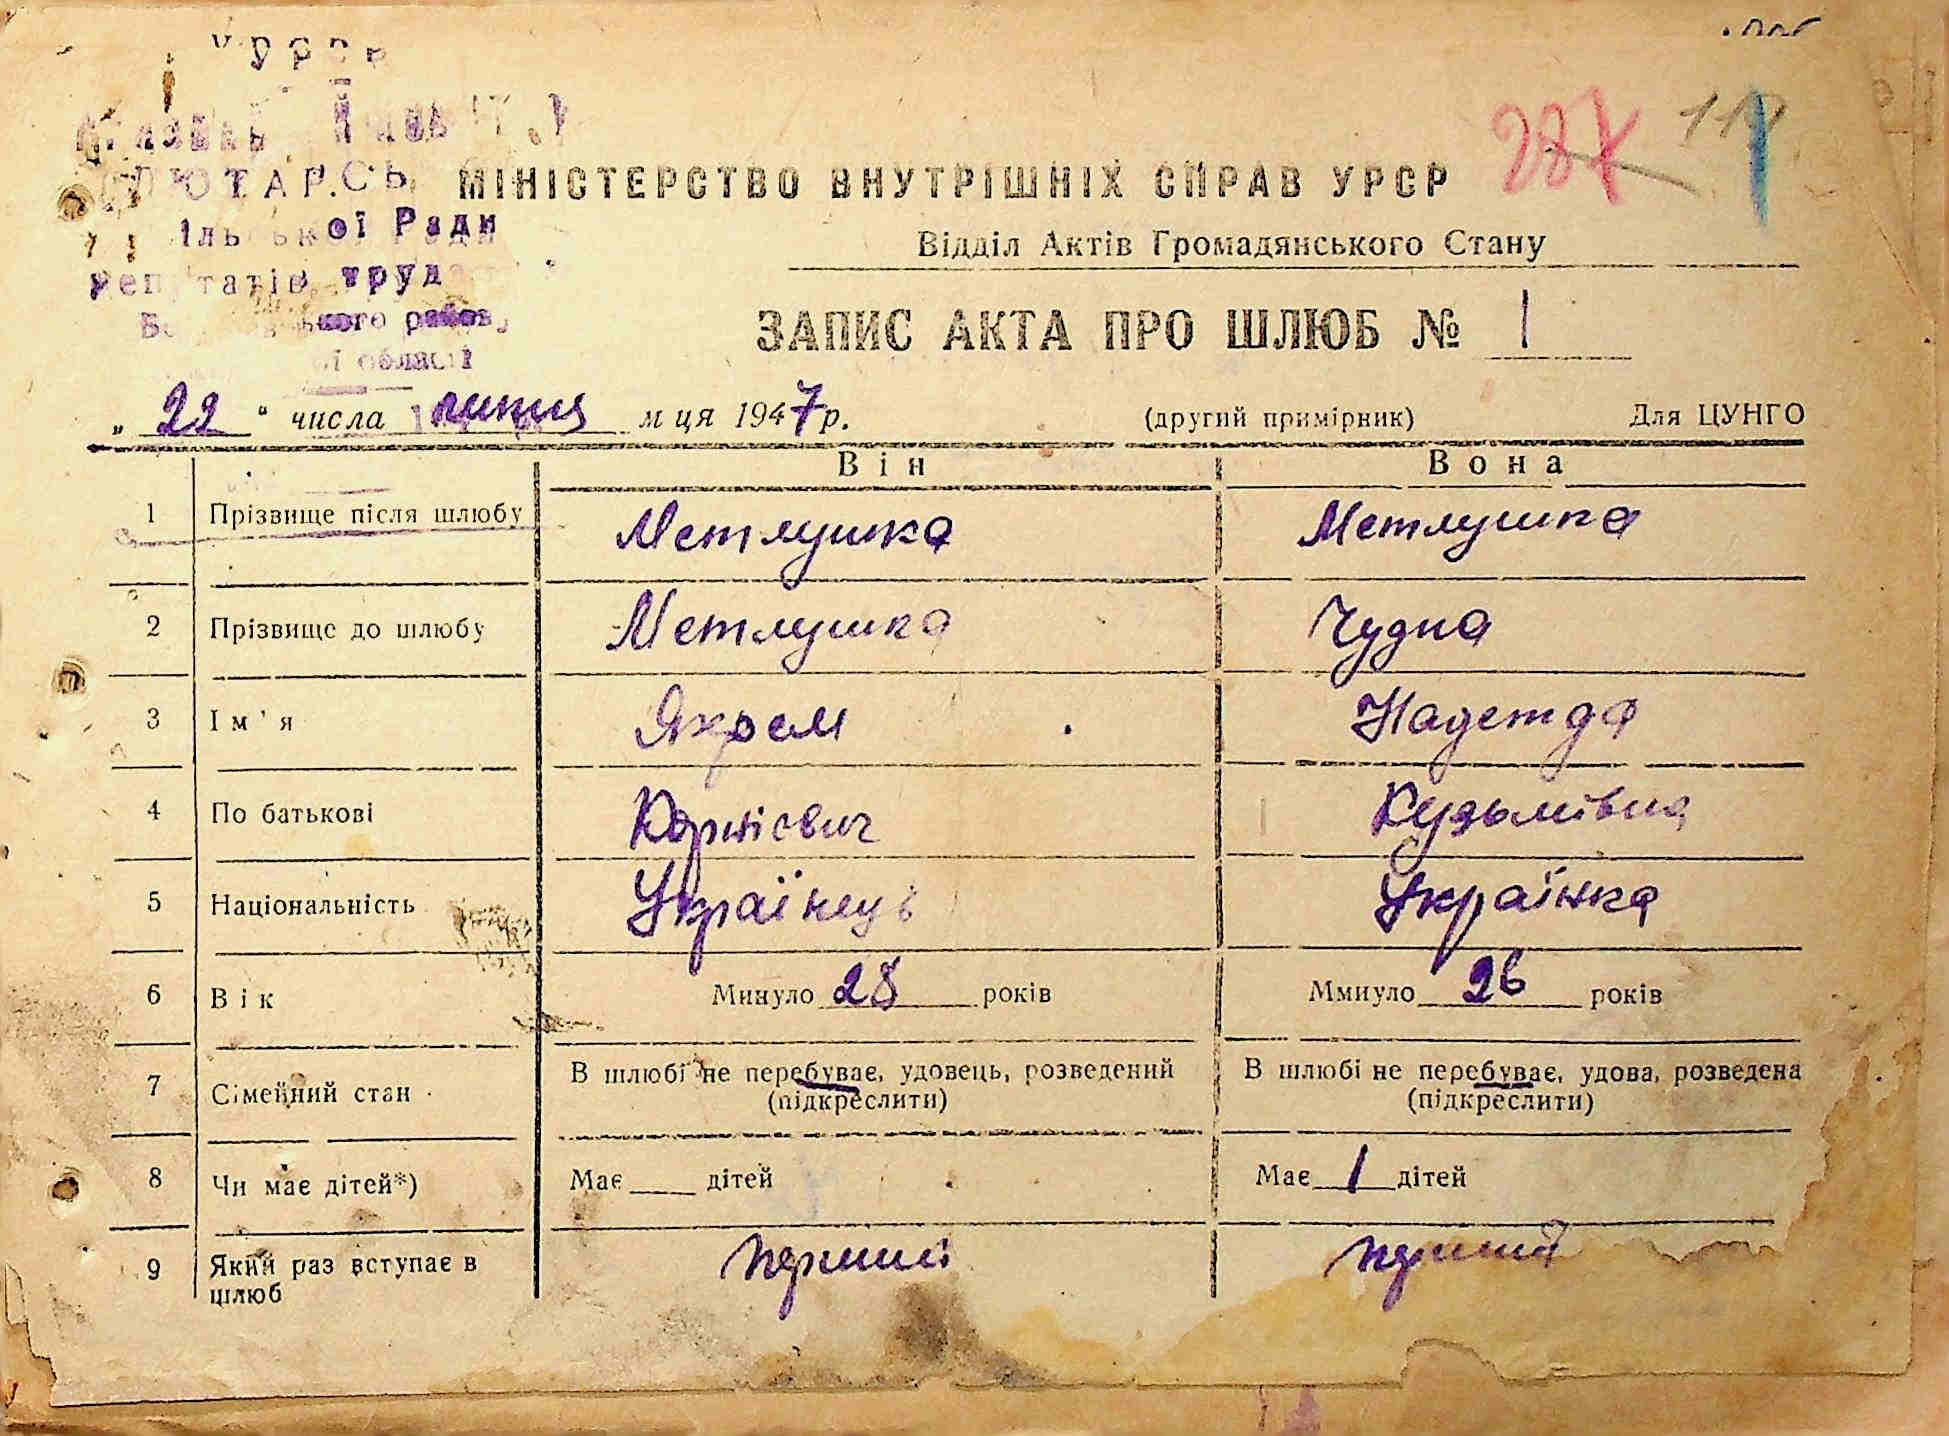 УРСР
ої Ради
трудя
МІНІСТЕРСТВО ВНУТРІШНІХ СПРАВ УРСР
287
Відділ Актів Громадянського Стану
області
ЗАПИС АКТА ПРО ШЛЮБ № 1
„ 22 " числа липня м ця 1947 р. (другий примірник) Для ЦУНГО
Він Вона
1 Прізвище після шлюбу Метлушка Метлушка
2 Прізвище до шлюбу Метлушка Чудна
3 Ім'я Якрем Надежда
4 По батькові Корнієвич Кузьмівна
5 Національність Українець Українка
6 Вік Минуло 28 років Ммнуло 26 років
7 Сімейний стан В шлюбі не перебуває, удовець, розведений В шлюбі не перебуває, удова, розведена
(підкреслити) (підкреслити)
8 Чи має дітей*) Має ____ дітей Має 1 дітей
9 Який раз вступає в перший перший
шлюб